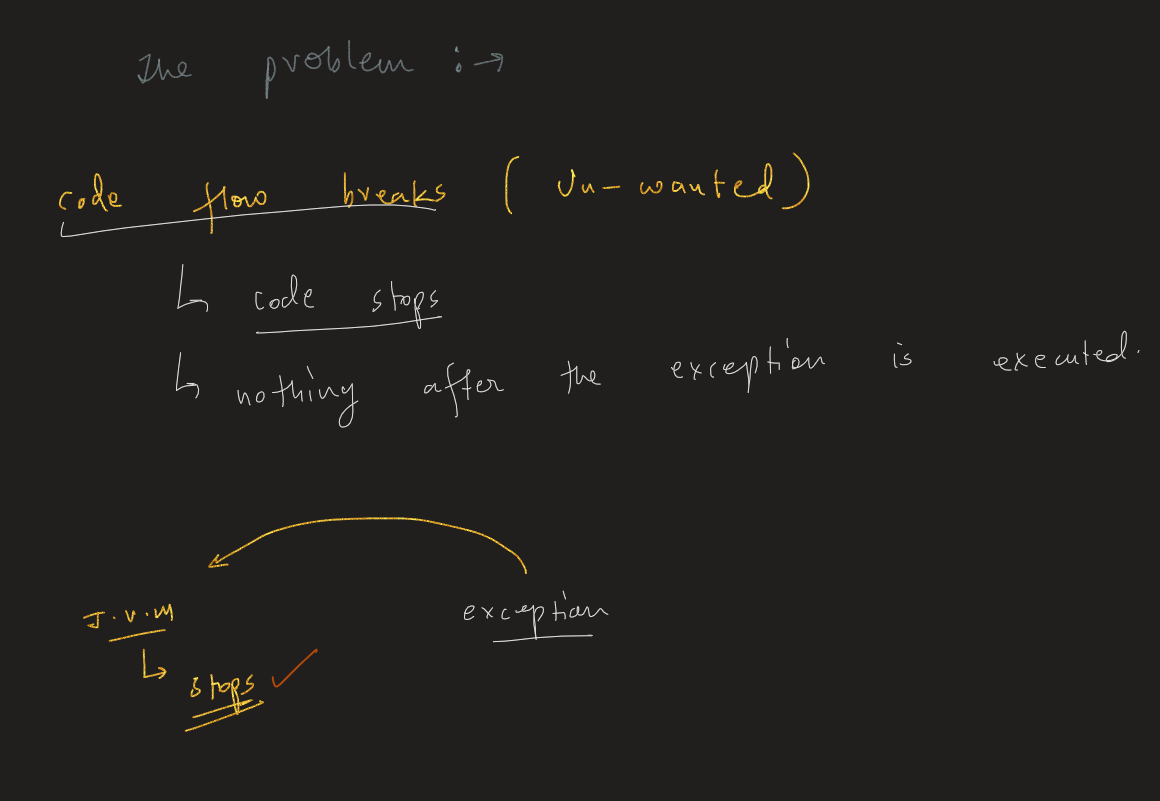 The problem :→
code flow breaks (Un-wanted)
↳ code stops
↳ nothing after the exception is executed.
J.V.M exception
↳ stops ✓